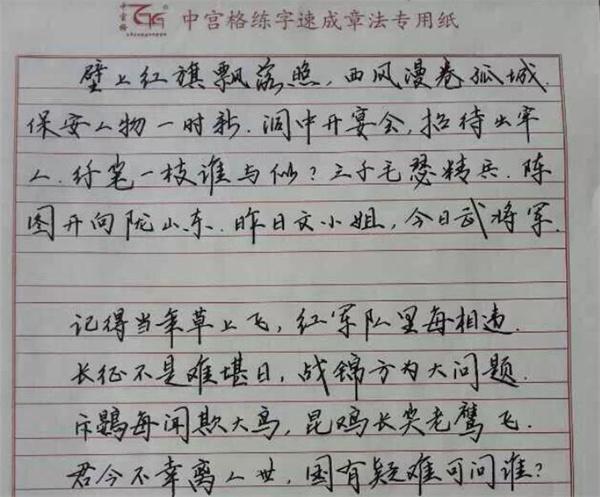 中宫格
中宫格练字速成章法专用纸
壁上红旗飘落照,西风漫卷孤城.
保安人物一时新.洞中开宴会,招待出牢
人.纤笔一枝谁与似?三千毛瑟精兵.陈
图开向陇山东.昨日文小姐,今日武将军.
记得当年草上飞,红军队里每相违.
长征不是难堪日,战锦方为大问题.
斥鷃每闻欺大鸟,昆鸡长笑老鹰飞.
君今不幸离人世,国有疑难可问谁?